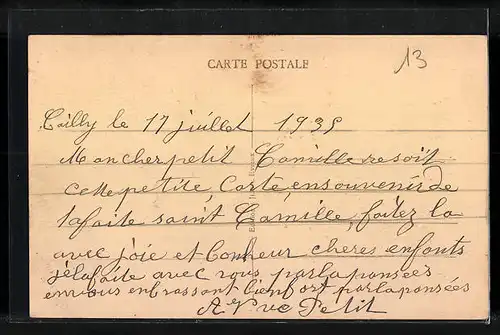 CARTE POSTALE
13
Cailly le 17 juillet 1935
Mon cher petit Camille resoit
cette petite, Carte, en souvenir de
ta faite saint Camille, faitez la
avec joie et bonheur cheres enfants
je la faite avec vous par la ponsées
en vous enbrassant bien fort par la ponsées
Petit